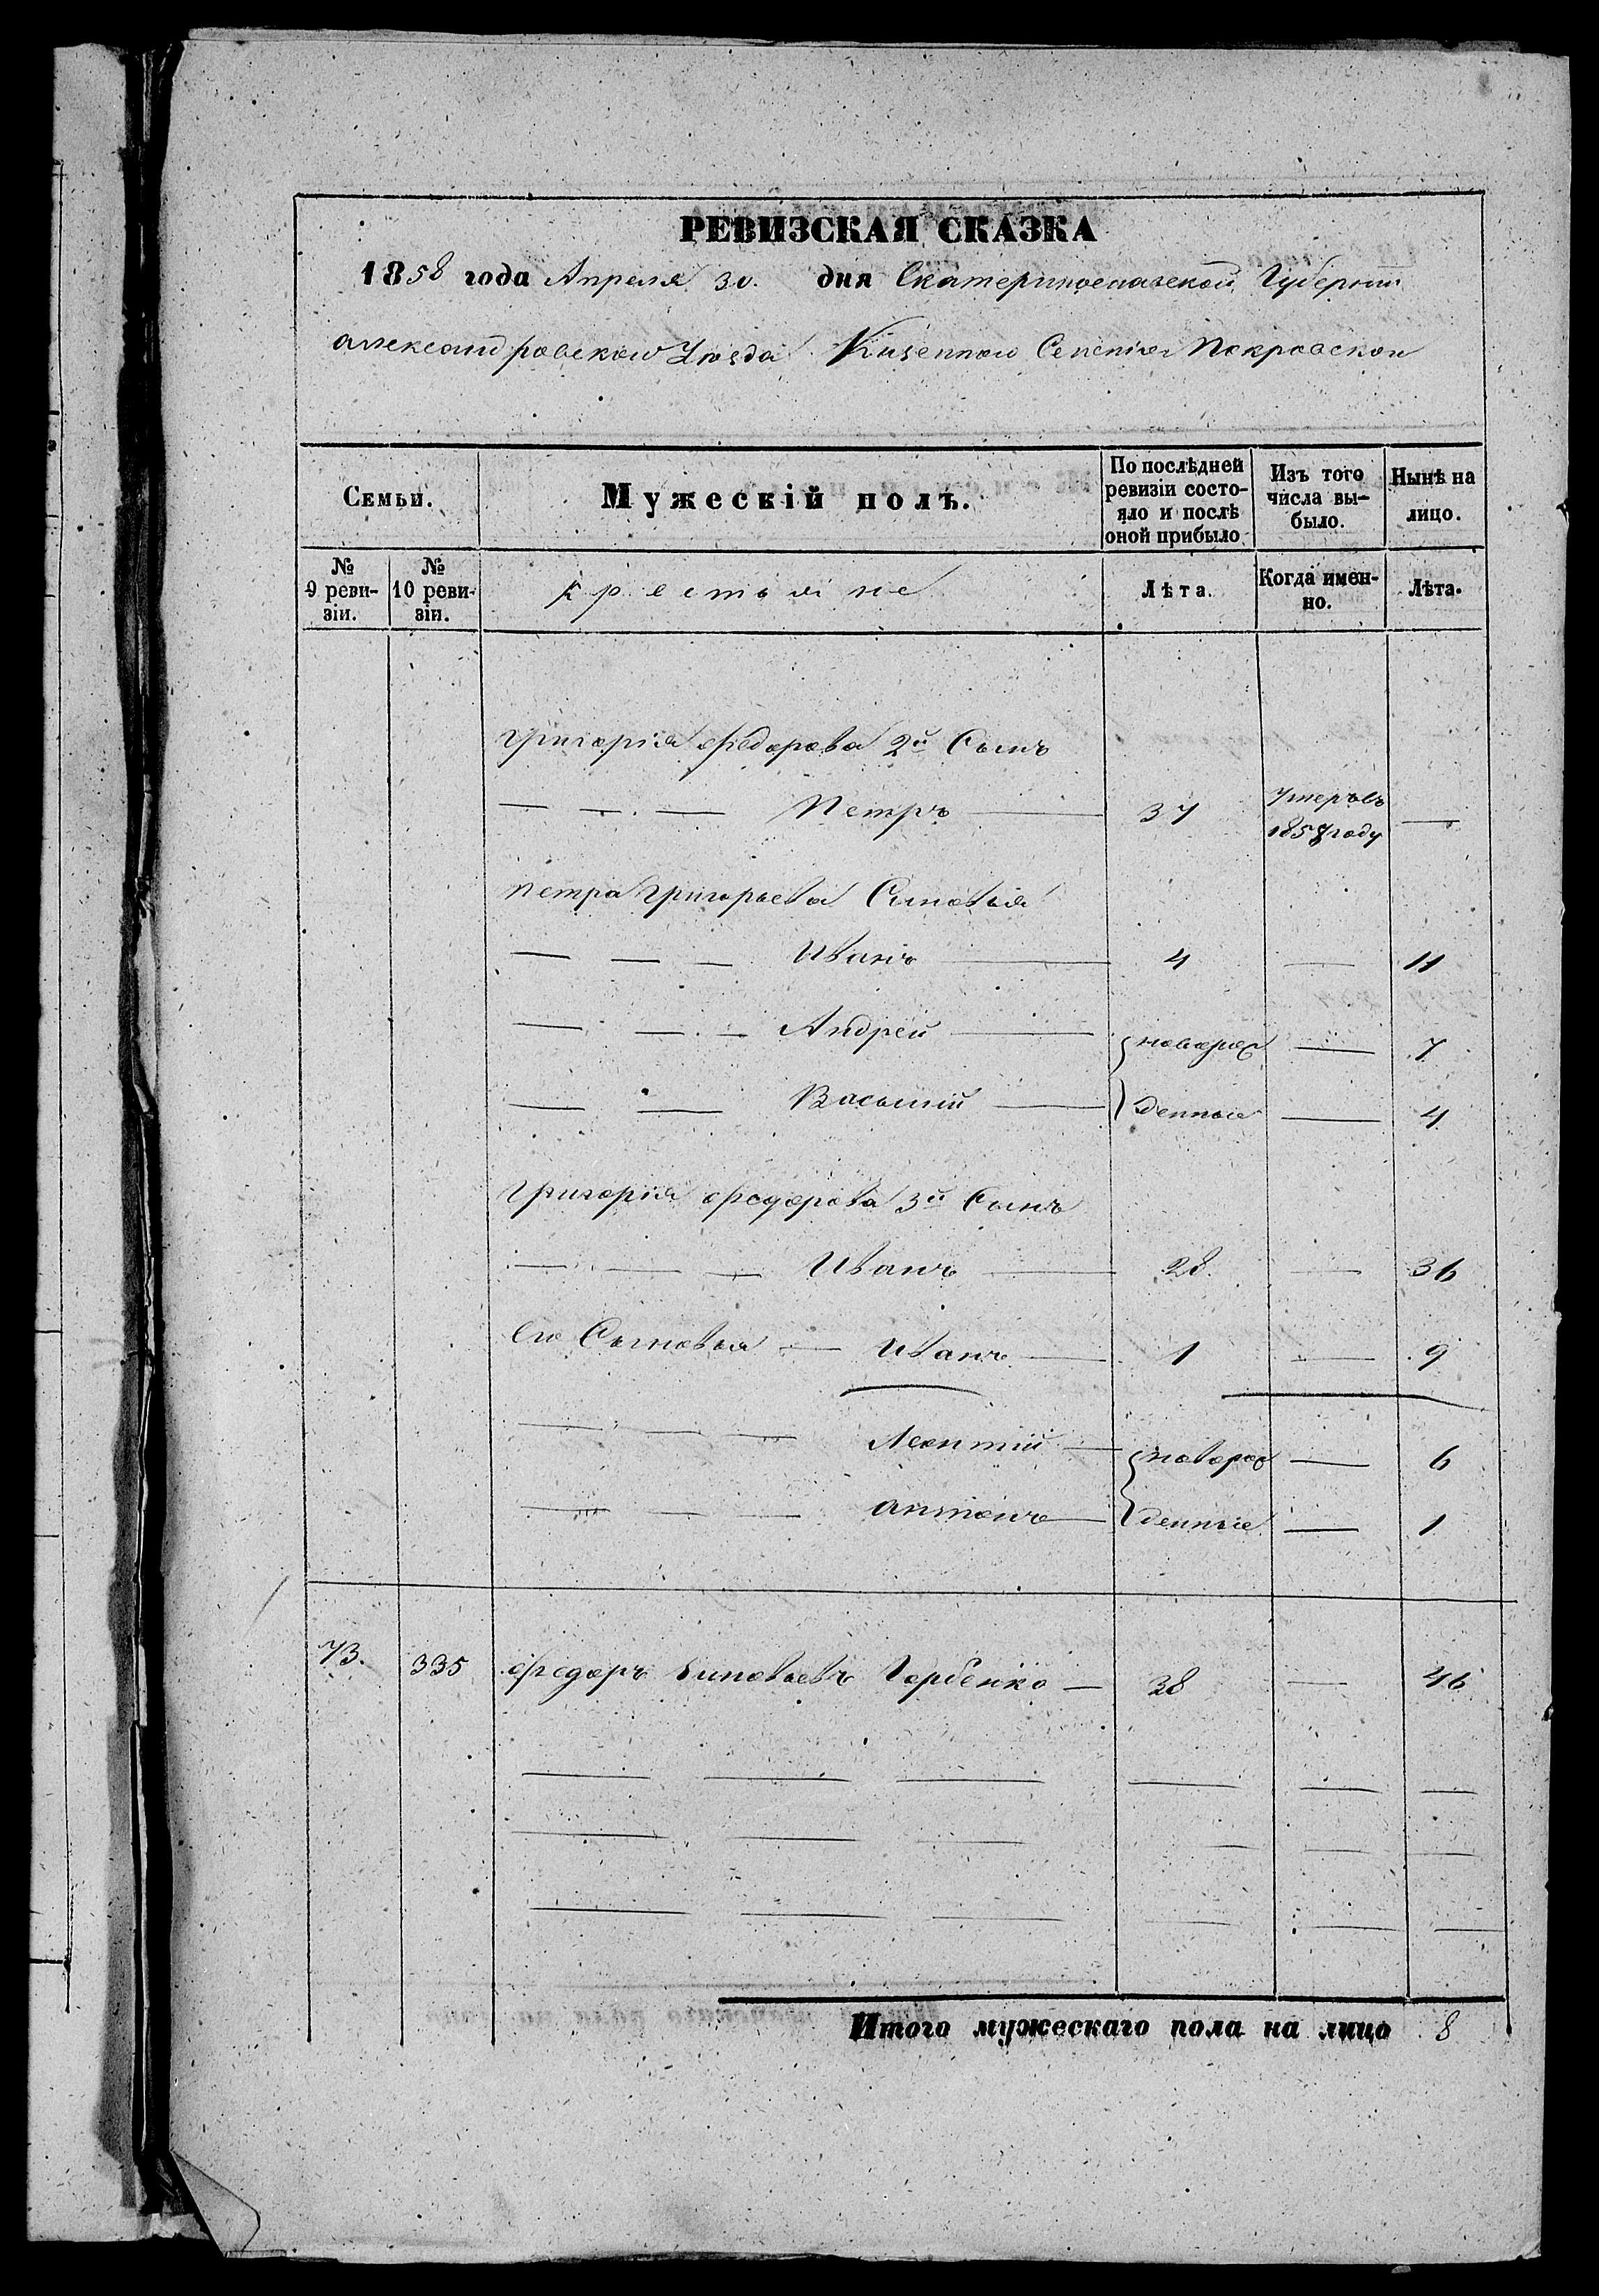 РЕВИЗСКАЯ СКАЗКА
1858 года Апреля 30. дня Екатеринославской Губернии
Александровского Уезда Казенного Селения Покровского
Семьи.
Мужескій полъ.
По послѣдней ревизіи состо-яло и послѣ оной прибыло
Изъ того числа вы-было.
Нынѣ на лицо.
№ 9 реви-зіи.
№ 10 реви-зіи.
крестьяне
Лѣта.
Когда имен-но.
Лѣта.
Григорія Федорова 2й Сынъ
Петръ 37 Умеръ въ 1857 году
Петра Григорьева Сыновья
Иванъ 4 11
Андрей новорож 7
Василий денные 4
Григорія Федорова 3й Сынъ
Иванъ 28. 36
Его Сыновья Иванъ 1 9
Леонтій новорож 6
Антонъ денные 1
73. 335 Федоръ Зиновьевъ Горбенко 38 46
Итого мужескаго пола на лицо 8